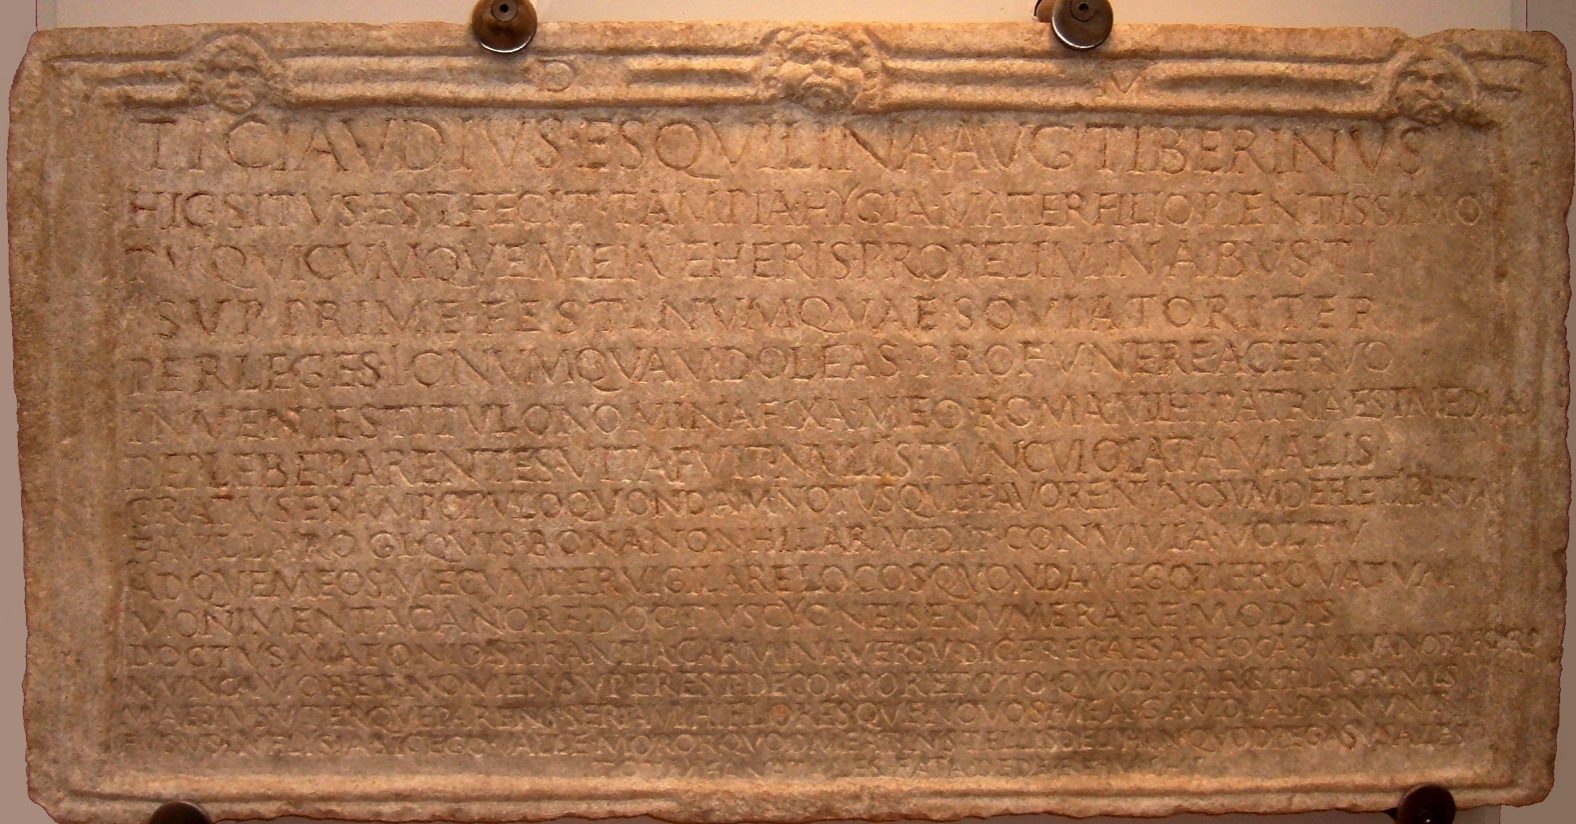 D M
TI CLAVDIVS ESQVILINA AVG TIBERINVS
HIC SITVS EST FECIT TAMPIA HYGIA MATER FILIO PIENTISSIMO
TV QVICVMQVE MEI VEHERIS PROPE LIMINA BVSTI
SVPPRIME FESTINVM QVAESO VIATOR ITER
PERLEGE SIC NVMQVAM DOLEAS PRO FVNERE ACERVO
INVENIES TITVLO NOMINA FIXA MEO ROMA MIHI PATRIA EST MEDIA
DE PLEBE PARENTES VITA FVIT NVLLIS TVNC VIOLATA MALIS
GRATVS ERAM POPVLO QVONDAM NOTVSQVE FAVORE NVNC SVM DEFLETI PARVA
FAVILLA ROGI QVIS BONA NON HILARI VIDIT CONVIVIA VOLTV
ADQVE MEOS MECVM PERVIGILARE IOCOS QVONDAM EGO PIERIO VATVM
MONIMENTA CANORE DOCTVS CYGNEIS ENVMERARE MODIS
DOCTVS MAEONIO SPIRANTIA CARMINA VERSV DICERE CAESAREO CARMINA NOTA FORO
NVNC AMOR ET NOMEN SVPEREST DE CORPORE TOTO QVOD SPARGIT LACRIMIS
MAESTVS VTERQVE PARENS SERTA MIHI FLORESQVE NOVOS MEA GAVDIA PONVNT
FVSVS IN ELYSIA SIC EGO VALLE MOROR QVOD MEAT IN STELLIS DELPHIN QVOD PEGASVS ALES